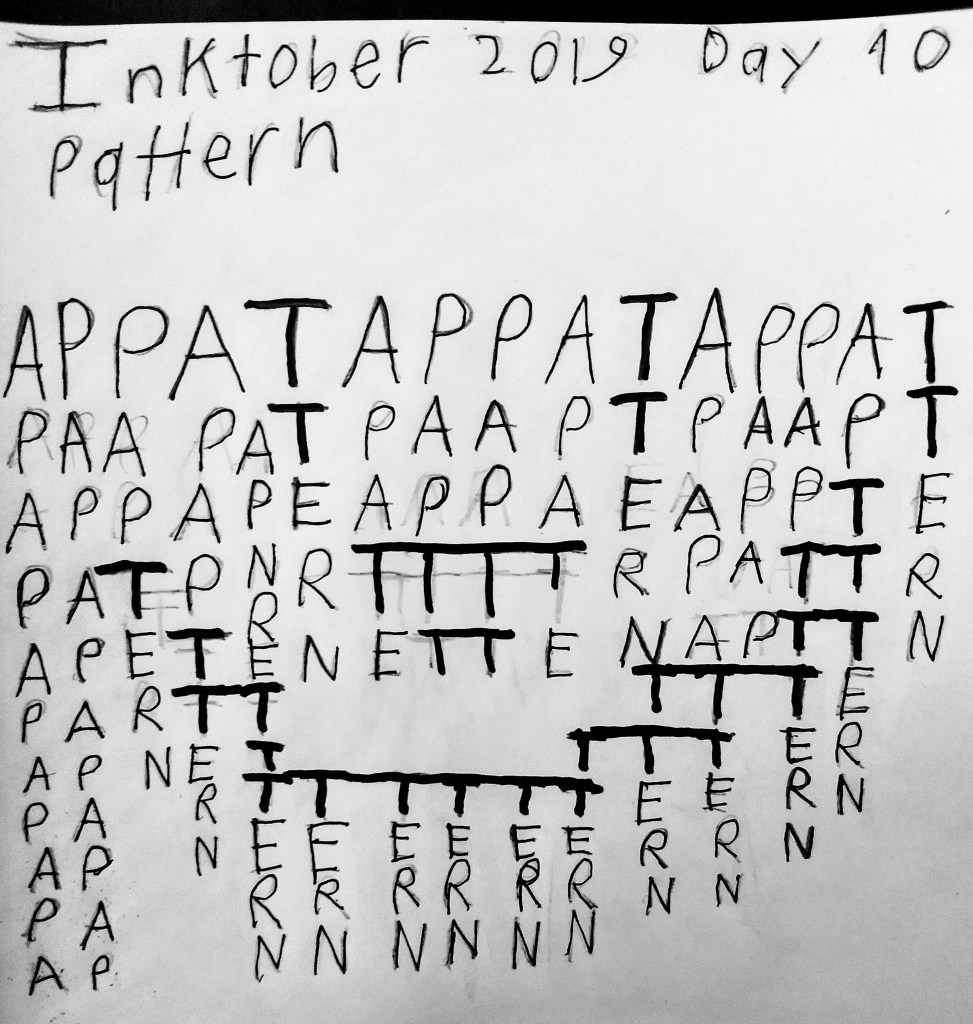 Inktober 2019 Day 10
Pattern
APPAT APPATAPPAT
PAA PAT PAAPTPAAPT
APPAPEAPPAEAPPTE
PATPNRTTTTRPATTR
RTTN
APETENETTENAPTTN
PARTTTTTE
TTTTER
APNETERN
TTTTTTEERN
PARERNN
EEEEEERR
APNNN
RRRRRR
PANNNNNN
AP